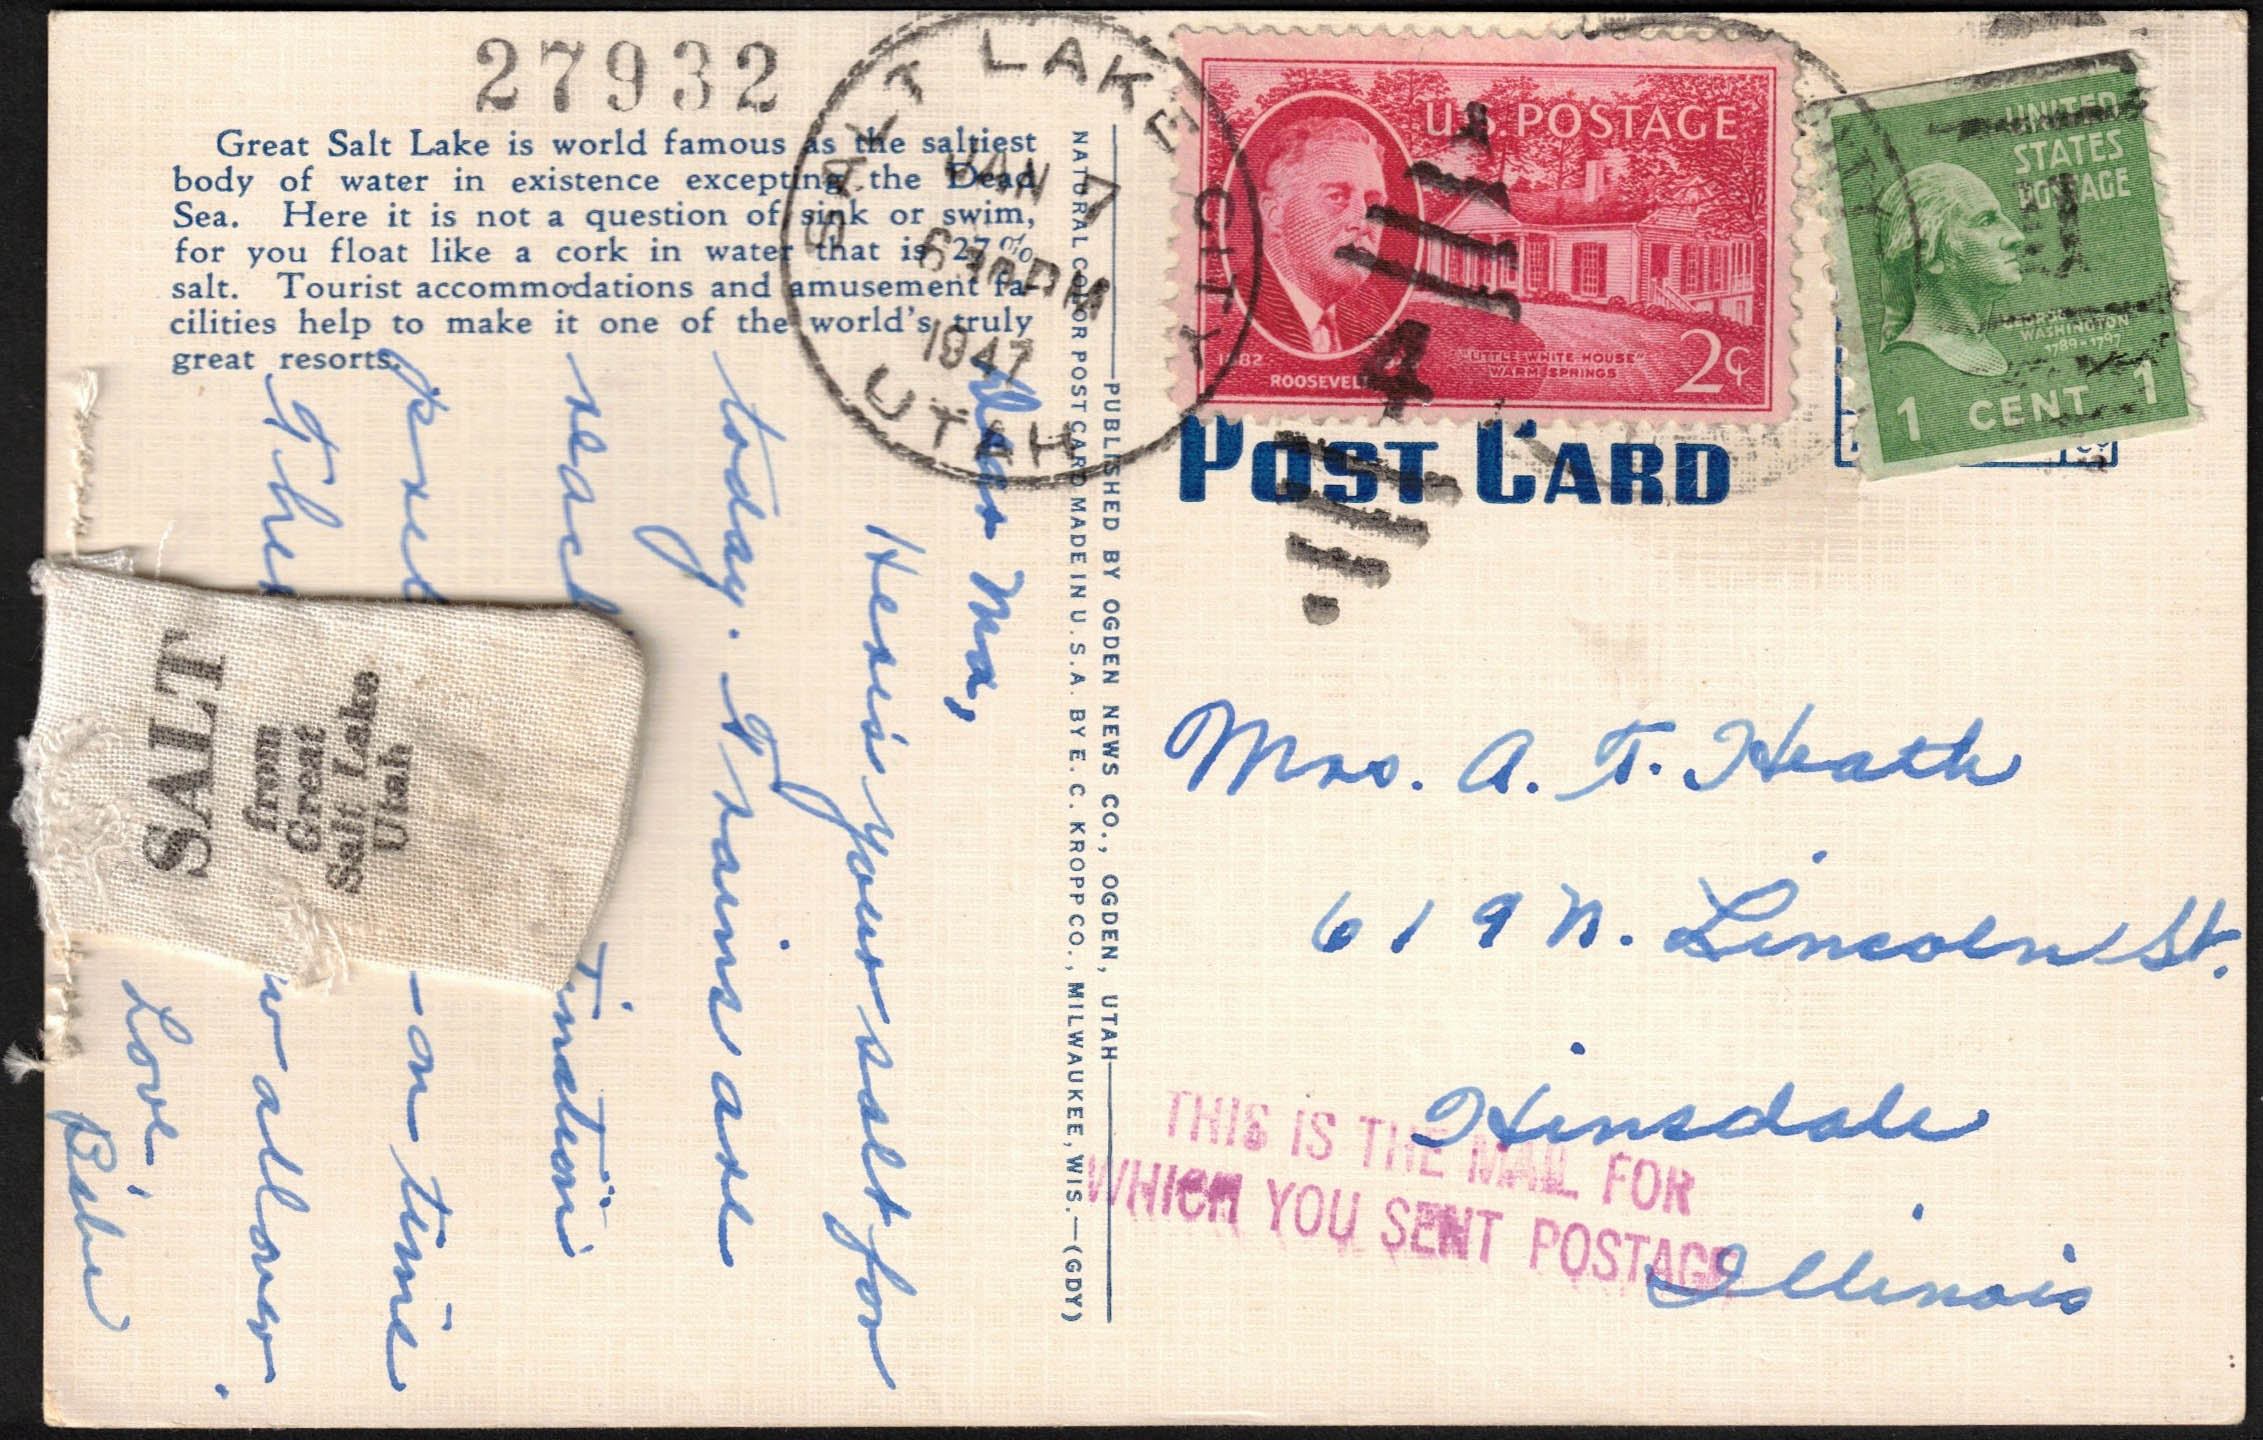 27932
Great Salt Lake is world famous as the saltiest
body of water in existence excepting the Dead
Sea. Here it is not a question of sink or swim,
for you float like a cork in water that is 27%
salt. Tourist accommodations and amusement fa-
cilities help to make it one of the world's truly
great resorts.
SALT LAKE CITY
JAN 7
6 PM
1947
UTAH
U.S. POSTAGE
1882
ROOSEVELT
"LITTLE WHITE HOUSE"
WARM SPRINGS
2¢
4
CITY
UNITED
STATES
POSTAGE
GEORGE
WASHINGTON
1789-1797
1 CENT 1
POST CARD
PUBLISHED BY OGDEN NEWS CO., OGDEN, UTAH
NATURAL COLOR POST CARD MADE IN U.S.A. BY E. C. KROPP CO., MILWAUKEE, WIS.—(GDY)
Dear Ma,
Here's your salt for
today. Trains are
timation
on time
all over.
Love
SALT
from
Great
Salt Lake
Utah
Mrs. A. T. Heath
619 N. Lincoln St.
Hinsdale
Illinois
THIS IS THE MAIL FOR
WHICH YOU SENT POSTAGE